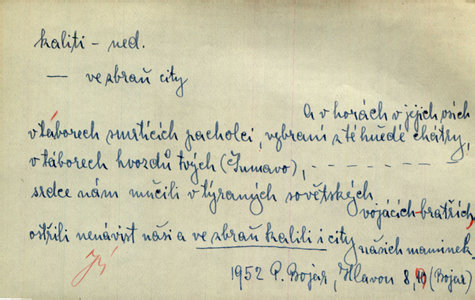 kaliti - ned.
— ve zbraň city
A v horách v jejich
v táborech smrtících pacholci, vybraní z té hnědé chátry,
v táborech hvozdů tvých (Šumavo), - - - - - - - -
srdce nám mučili v týraných sovětských
vojácích-bratřích,
ostřili nenávist naši a ve zbraň kalili i city
našich maminek.
1952 P. Bojar, Hlavou 8, (Bojar)